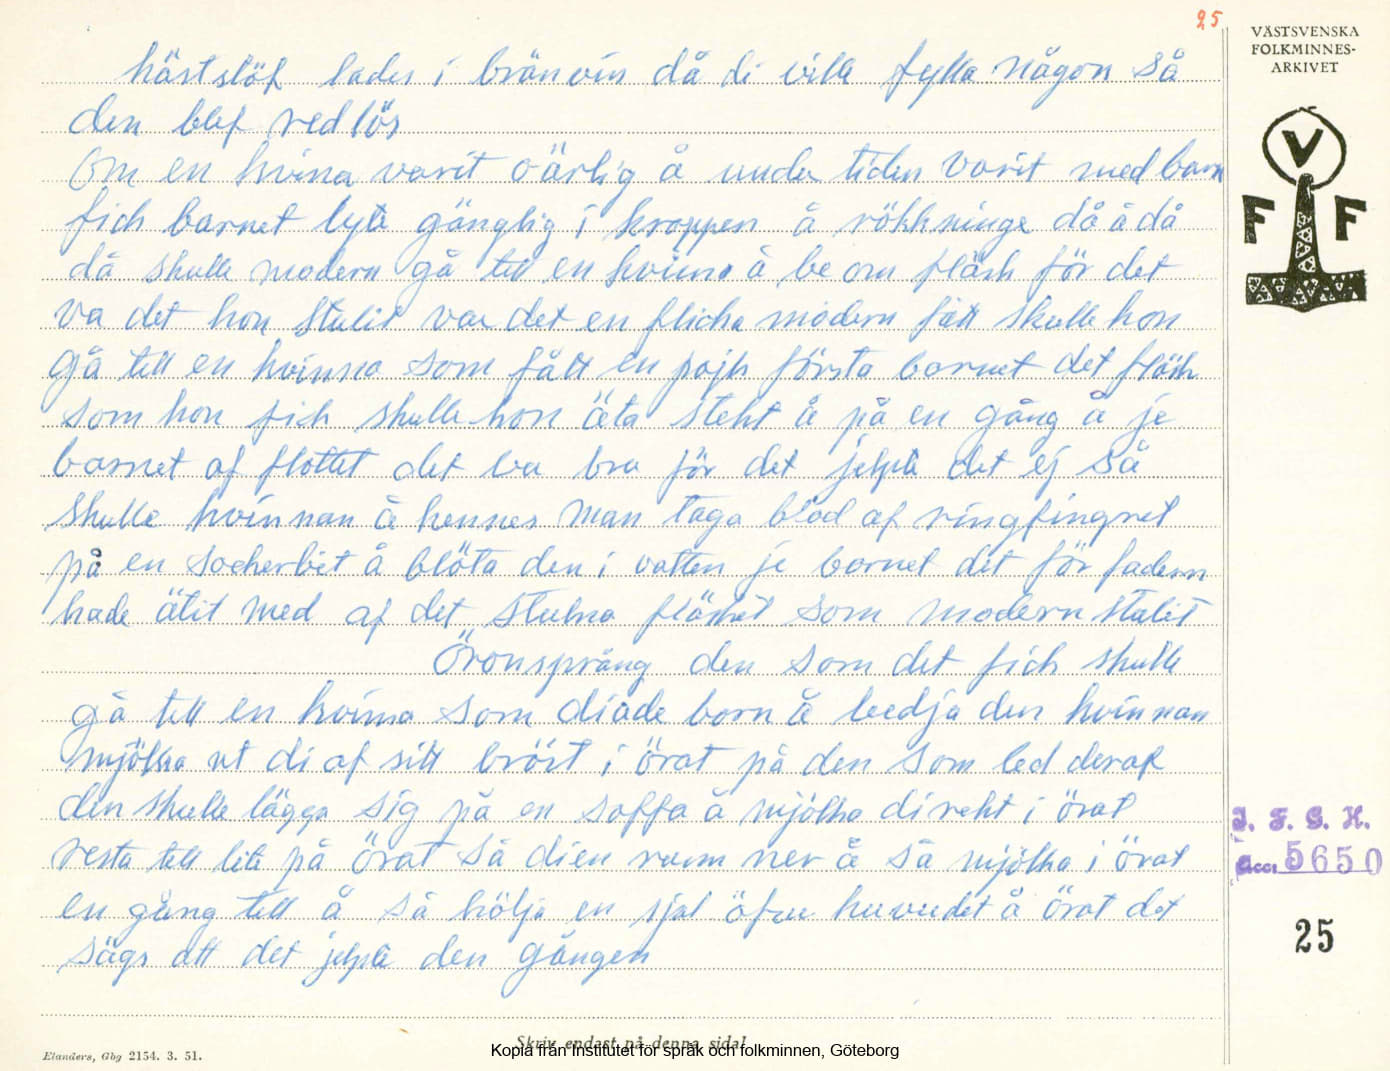 25
VÄSTSVENSKA
FOLKMINNES-
ARKIVET
V
F F
hästslöf lades i bränvin då di ville fylla någon så
den blef redlös
Om en kvina varit oärlig å under tiden varit med barn
fich barnet lyte gänglig i kroppen å rökkninge då å då
då skulle modern gå till en kvinna å be om fläsk för det
va det hon stulit var det en flicka modern fått skulle hon
gå till en kvinna som fått en pojk första barnet det fläsk
som hon fich skulle hon äta stekt å på en gång å je
barnet af flottet det va bra för det jelpte det ej så
skulle kvinnan å hennes man taga blod af ringfingret
på en sockerbit å blöta den i vatten je barnet det för fadern
hade ätit med af det stulna fläsket som modern stulit
Öronsprång den som det fich skulle
gå till en kvinna som diade barn å bedja den kvinnan
mjölka ut di af sitt bröst i örat på den som led deraf
den skulle lägga sig på en soffa å mjölka direkt i örat
resta till lite på örat så dien rann ner å så mjölka i örat
en gång till å så hölja en sjal öfver huvudet å örat det
sägs att det jelpte den gången
I. F. G. H.
acc. 5650
25
Skriv endast på denna sida!
Elanders, Gbg 2154. 3. 51.
Kopia från Institutet för språk och folkminnen, Göteborg